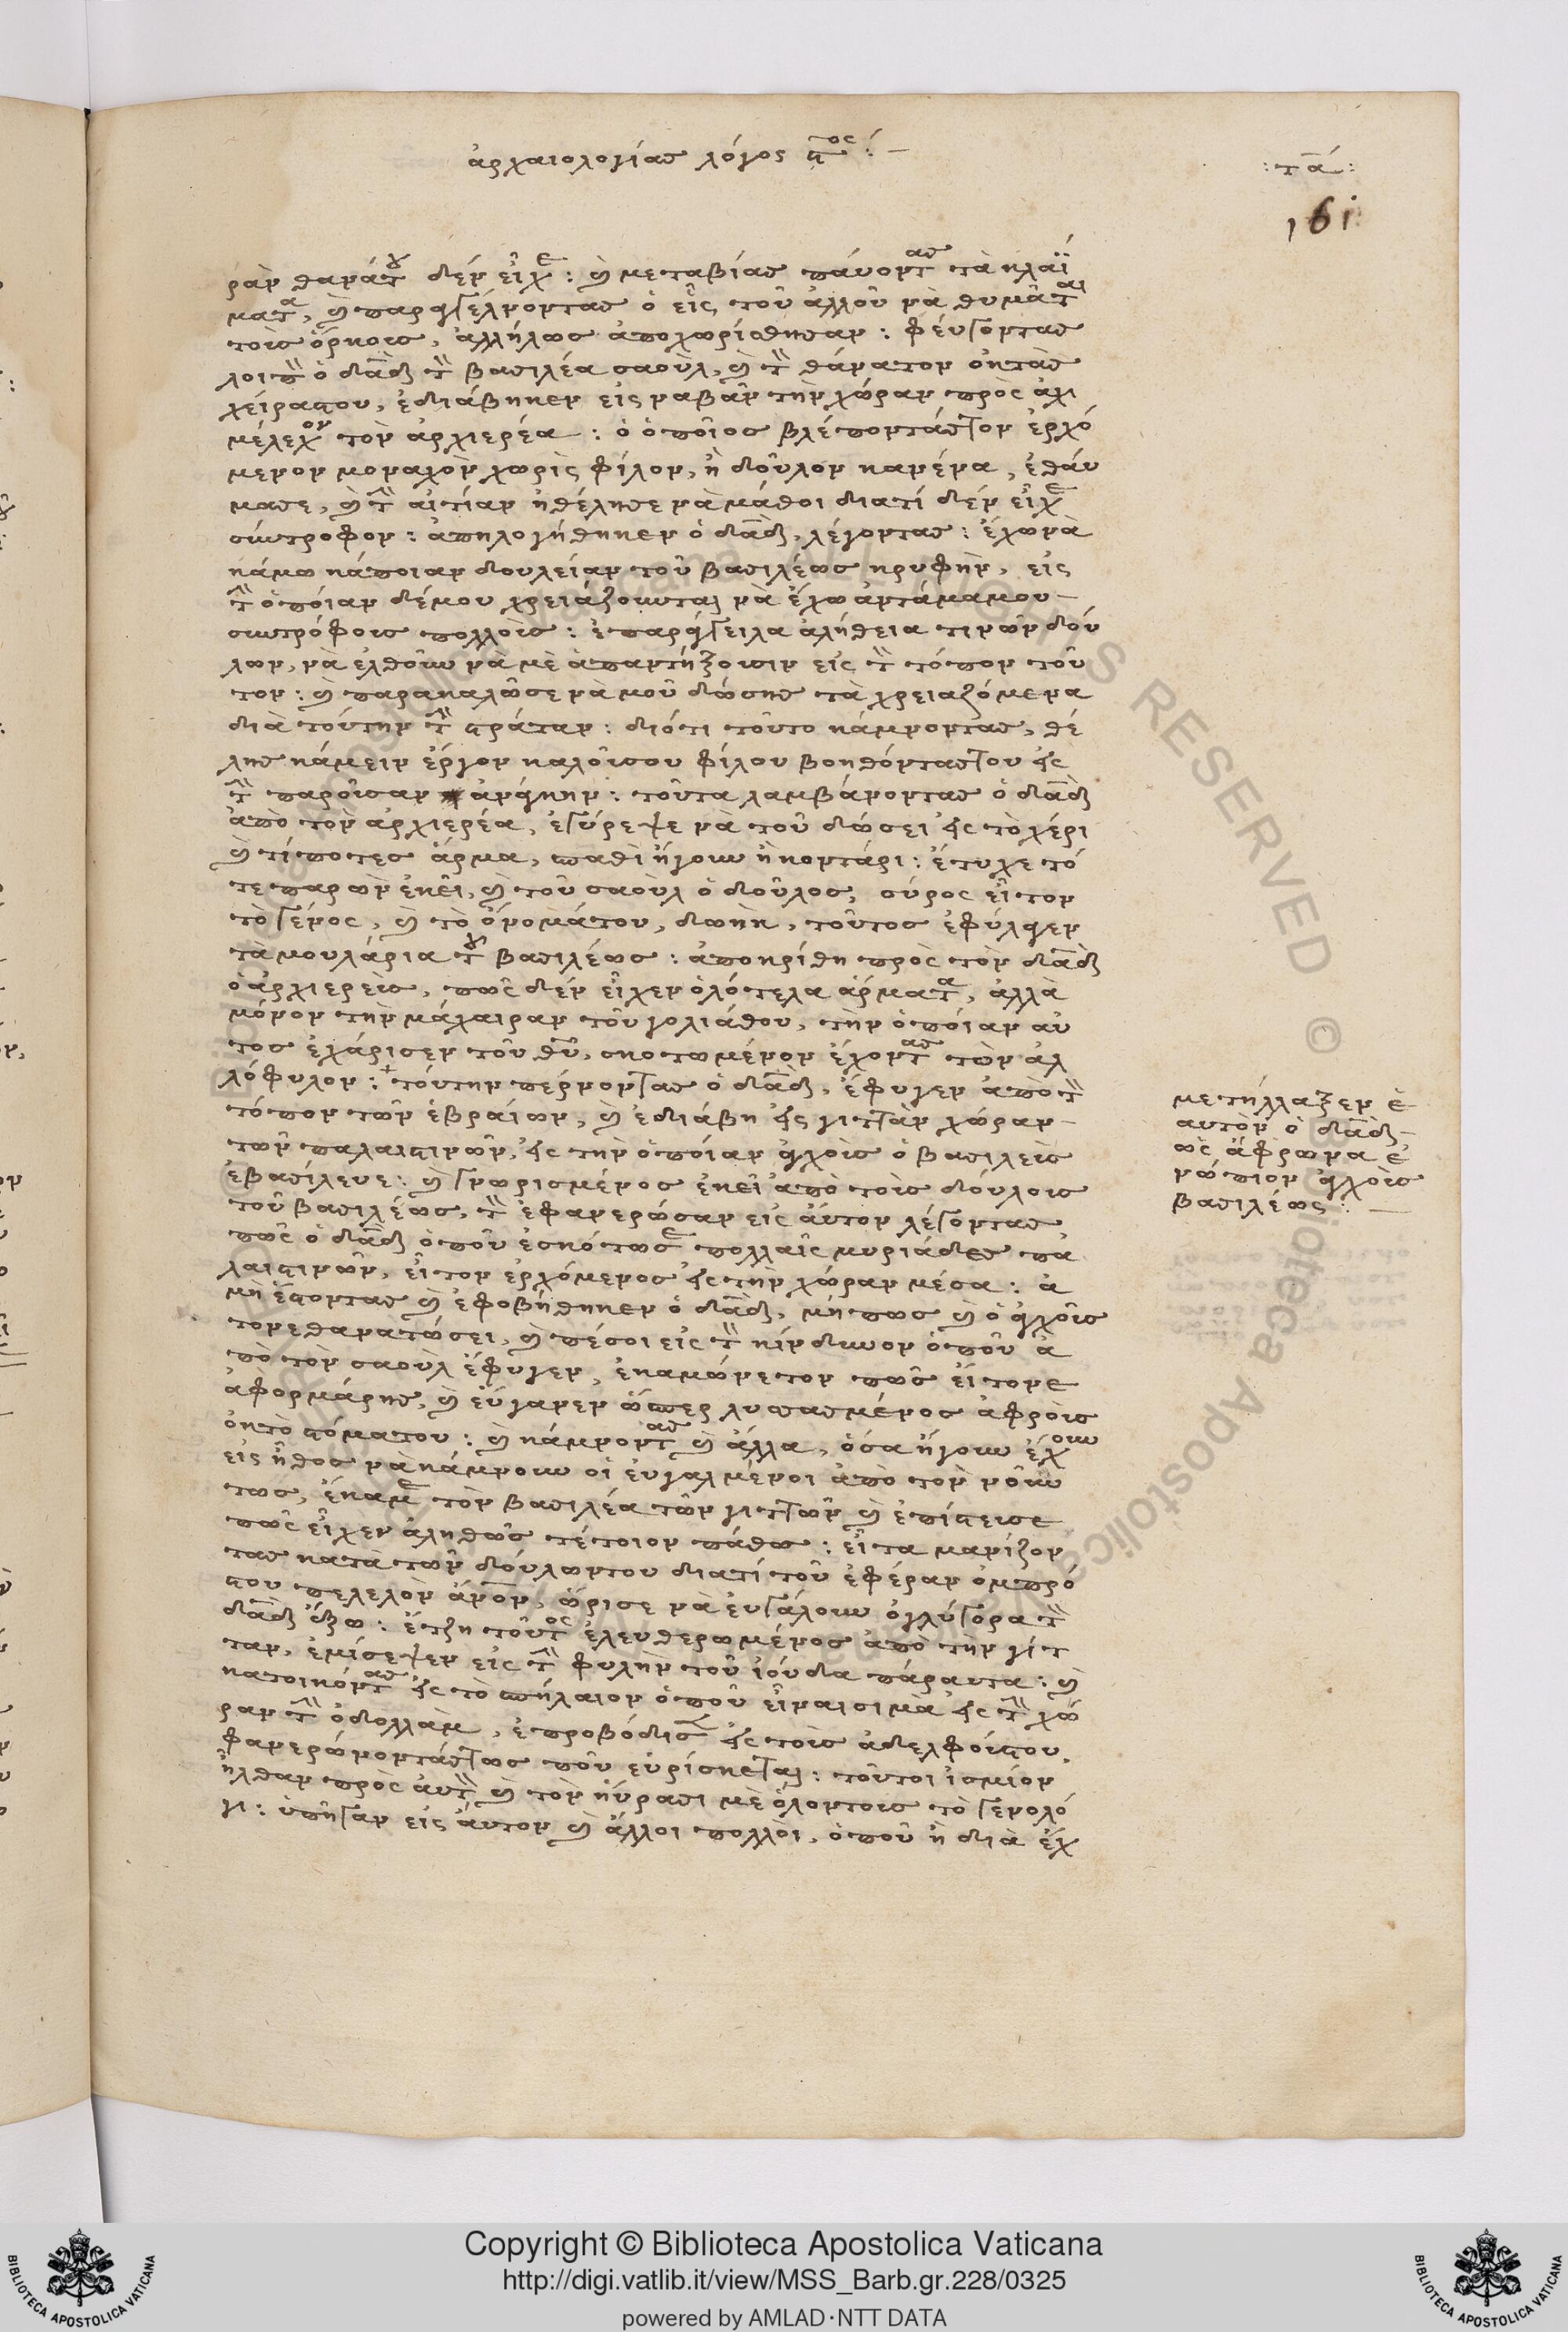 ἀρχαιολογίας λόγος ϛ^ος :—
: τα :
161
ρὰν θανάτου δὲν εἶχε : καὶ μεταβίας πάυοντας τὰ κλαΐ
ματα, καὶ παραγγέλνοντας ὁ εἷς τοῦ ἀλλοῦ νὰ θυμᾶται
τοὶς ὅρκοις, ἀλλήλως ἀποχωρίσθησαν : φέυγοντας
λοιπὸν ὁ δαδ τὸν βασιλέα σαοὺλ, καὶ τὸν θάνατον ὀκτὰς
χείραςτου, ἐδιάβηκεν εἰς ναβὰν τὴν χώραν πρὸς ἀχι
μέλεχον τὸν ἀρχιερέα : ὁ ὁποῖος βλέποντάςτον ἐρχό
μενον μοναχὸν χωρὶς φίλον, ἢ δοῦλον κανένα, ἐθάυ
μασε, καὶ τὴν αἰτίαν ἠθέλησε νὰ μάθοι διατί δὲν εἶχε
σύντροφον : ἀπηλογήθηκεν ὁ δαδ, λέγοντας : ἔχω νὰ
κάμω κάποιαν δουλείαν τοῦ βασιλέως κρυφὴν, εἰς
τὴν ὁποίαν δέμου χρειάζουνται νὰ ἔχω ἀντάμαμου
συντρόφοις πολλοὶς : ἐπαράγγειλα ἀλήθεια τινῶν δού
λων, νὰ ἐλθοῦν νὰ μὲ ἀπαντήξουσιν εἰς τὸν τόπον τοῦ
τον : καὶ παρακαλῶσε νὰ μοῦ δώσης τὰ χρειαζόμενα
διὰ τούτην τὴν στράταν : διότι τοῦτο κάμνοντας, θέ
λης κάμειν ἔργον καλοῖσου φίλου βοηθόνταςτου εἰς
τὴν παροῖσαν ἀνάγκην : τοῦτα λαμβάνοντας ὁ δαδ
ἀπὸ τὸν ἀρχιερέα, ἐγύρεψε νὰ τοῦ δώσει εἰς τὸ χέρι
καὶ τίποτες ἄρμα, σπαθὶ ἤγουν ἢ κοντάρι : ἔτυχε τό
τε παρὼν ἐκεῖ, καὶ τοῦ σαοὺλ ὁ δοῦλος, σύρος εἶτον
τὸ γένος, καὶ τὸ ὄνομάτου, δωὴκ, τοῦτος ἐφύλαγεν
τὰ μουλάρια τοῦ βασιλέως : ἀποκρίθη πρὸς τὸν δαδ
ὁ ἀρχιερεὶς, πῶς δὲν εἶχεν ὁλότελα ἄρματα, ἀλλὰ
μόνον τὴν μάχαιραν τοῦ γολιάθου, τὴν ὁποίαν αὐ
τος ἐχάρισεν τοῦ θυ, σκοτωμένον ἔχοντας τὸν ἀλ
λόφυλον : + τούτην πέρνονταςὁ δαδ, ἔφυγεν ἀπὸ τὸν
τόπον τῶν ἑβραίων, καὶ ἐδιάβη εἰς γιτταν χώραν
τῶν παλαιστινῶν, εἰς τὴν ὁποίαν ἀγχοὶς ὁ βασιλεὶς
ἐβασίλευε : καὶ γνωρισμένος ἐκεῖ ἀπὸ τοὶς δούλοις
τοῦ βασιλέως, τὸν ἐφανερώσαν εἰς ἄυτον λέγοντας
πῶς ὁ δαδ ὁποῦ ἐσκότωσε πολλαῖς μυριάδες πα
λαιστινῶν, εἶτον ἐρχόμενος εἰς τὴν χώραν μέσα : ἀ
μὴ ἔστοντας καὶ ἐφοβήθηκεν ὁ δαδ, μήπως καὶ ὁ ἀγχοῖς
τονεθανατώσει, καὶ πέσοι εἰς τὸν κίνδυνον ὁποῦ ἀ
πὸ τὸν σαοὺλ ἔφυγεν, ἐκαμώνετον πῶς εἴτονε
ἀφορμάρης, καὶ εὔγανεν ὥσπερ λυσσασμένος ἀφροὶς
ὀκτὸ στόματου : καὶ κάμνοντας καὶ ἄλλα, ὅσα ἤγουν ἔχουν
εἰς ἦθος νὰ κάμνουν οἱ ἐυγαλμένοι ἀπὸ τὸν νοῦν
τως, ἔκαμε τὸν βασιλέα τῶν γιττῶν καὶ ἐπίστεισε
πῶς εἶχεν ἀληθῶς τέτοιον πάθος : εἶτα μανίζον
τας κατὰ τῶν δούλωντου διατί τοῦ ἐφέραν ὀμπρό
στου πελελὸν ἄνον, ὥρισε νὰ ἐυγάλουν ὀγλύγορα τὸν
δαδ ἔξω : ἔτζη τοῦτος ἐλευθερωμένος ἀπὸ τὴν γίτ
ταν, ἐμίσεψεν εἰς τὴν φυλὴν τοῦ ἰούδα πάραυτα : καὶ
κατοικόντας εἰς τὸ σπήλαιον ὁποῦ εἶναι σιμὰ εἰς τὴν χώ
ραν τὴν ὀδολλὰμ, ἐπροβόδισε εἰς τοὶς ἀδελφοίςτου,
φανερώνοντάςτως ποῦ εὑρίσκεται : τοῦτοι ἰσμίον
ἦλθαν πρὸς ἀυτὸν καὶ τὸν ηὕρασι μὲ ὅλοντοις τὸ γενολό
γι : ὑπῆγαν εἰς ἄυτον καὶ ἄλλοι πολλοὶ, ὁποῦ ἢ διὰ ἔχ
μετήλλαξεν ἑ
αυτὸν ὁ δαδ
ὡς ἄφρωνα ἐ
νώπιον ἀγχοὶς
βασιλέως : —
Copyright © Biblioteca Apostolica Vaticana
http://digi.vatlib.it/view/MSS_Barb.gr.228/0325
powered by AMLAD·NTT DATA